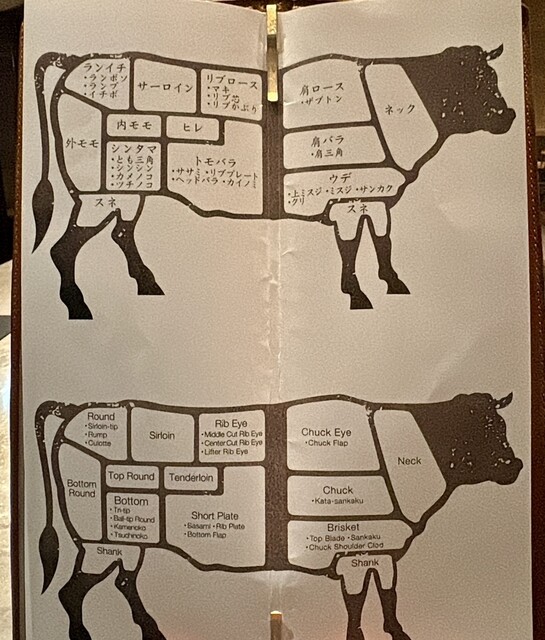 ランイチ
・ランボソ
・ランプ
・イチボ
サーロイン
リブロース
・マキ
・リブ芯
・リブかぶり
肩ロース
・ザブトン
ネック
外モモ
内モモ
ヒレ
シンタマ
・とも三角
・シンシン
・カメノコ
・ツチノコ
トモバラ
・ササミ ・リブプレート
・ヘッドバラ ・カイノミ
肩バラ
・肩三角
ウデ
・上ミスジ ・ミスジ ・サンカク
・クリ
スネ
スネ
Round
・Sirloin-tip
・Rump
・Culotte
Sirloin
Rib Eye
・Middle Cut Rib Eye
・Center Cut Rib Eye
・Lifter Rib Eye
Chuck Eye
・Chuck Flap
Neck
Bottom
Round
Top Round
Tenderloin
Bottom
・Tri-tip
・Ball-tip Round
・Kamenoko
・Tsuchinoko
Short Plate
・Sasami ・Rib Plate
・Bottom Flap
Chuck
・Kata-sankaku
Brisket
・Top Blade ・Sankaku
・Chuck Shoulder Clod
Shank
Shank